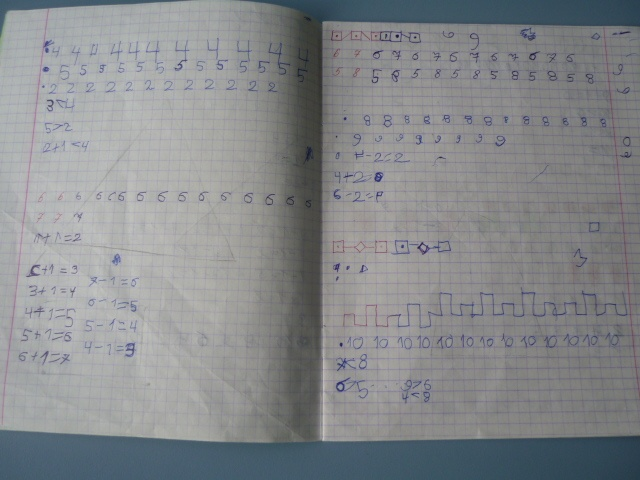 4 4 4 4 4 4 4 4 4 4 4
5 5 5 5 5 5 5 5 5 5 5 5 5
2 2 2 2 2 2 2 2 2 2 2 2 2
3<4
5>2
2+1<4
6 6 6 6 6 6 6 6 6 6 6 6 6 6
7 7 7
1+1=2
2+1=3
3+1=4
4+1=5
5+1=6
6+1=7
7-1=6
6-1=5
5-1=4
4-1=3
6 9
6 7 6 7 6 7 6 7 6 7 6
5 8 5 8 5 8 5 8 5 8 5 8 5 8
8 8 8 8 8 8 8 8 8 8 8 8 8
9 9 9 9 9 9 9 9
4-2=2
4+2=6
6-2=
3
10 10 10 10 10 10 10 10 10 10 10 10 10
7<8
6>5
9>6